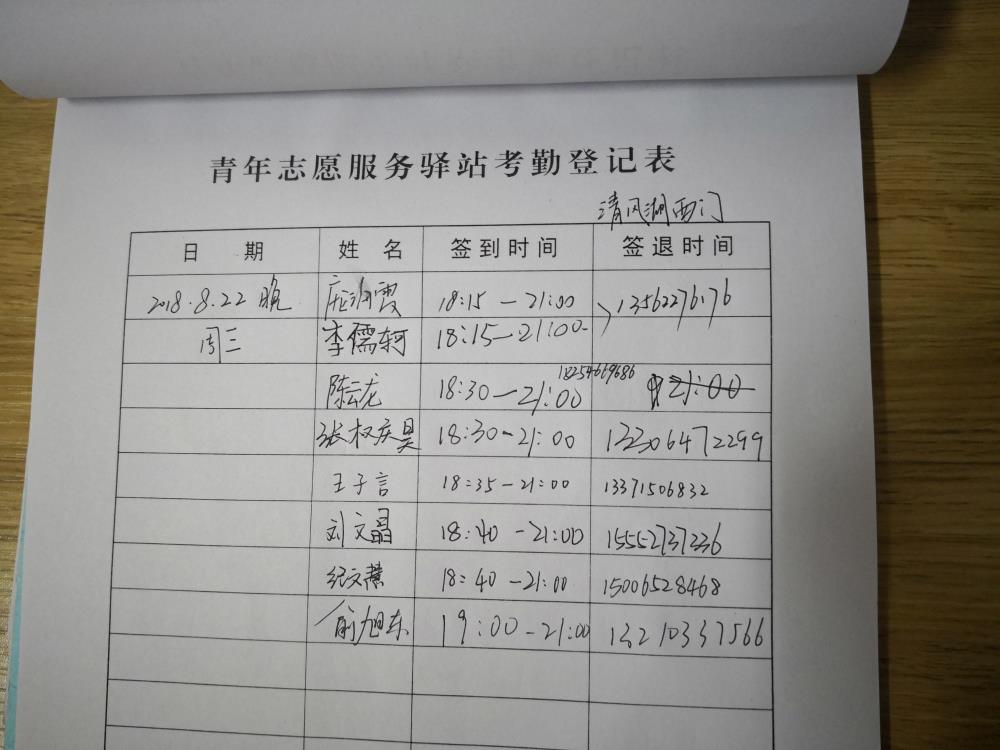 青年志愿服务驿站考勤登记表
清风湖西门
日 期 姓 名 签到时间 签退时间
2018.8.22 晚 庞润霞 18:15 — 21:00 13562276176
周三 李儒轲 18:15 — 21:00
陈云龙 18:30 — 21:00 18254669686 21:00
张权庆昊 18:30 — 21:00 13306472299
王子言 18:35 — 21:00 13371506832
刘文晶 18:40 — 21:00 15552737236
纪文 18:40 — 21:00 15006528468
俞旭东 19:00 — 21:00 13210337566